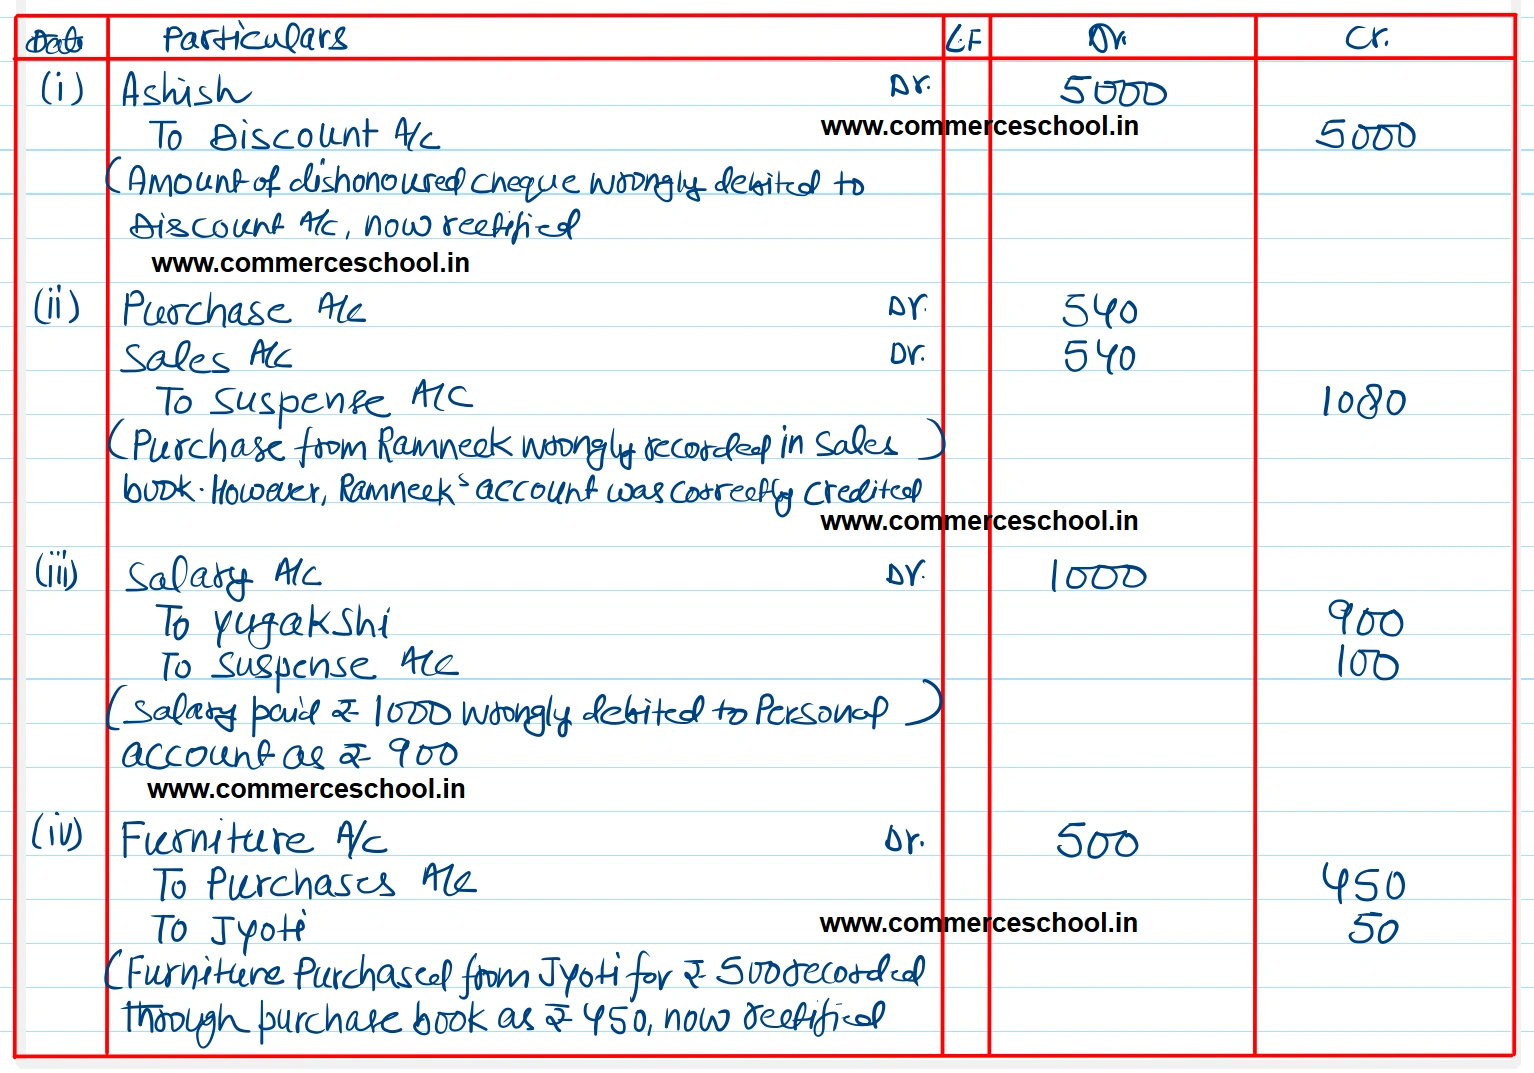 Date Particulars L.F Dr. Cr.
(i) Ashish Dr. 5000
www.commerceschool.in
To Discount A/c 5000
(Amount of dishonoured cheque wrongly debited to
Discount A/c, now rectified
www.commerceschool.in
(ii) Purchase A/c Dr. 540
Sales A/c Dr. 540
To Suspense A/C 1080
(Purchase from Ramneek wrongly recorded in Sales )
book. However, Ramneek's account was correctly credited
www.commerceschool.in
(iii) Salary A/c Dr. 1000
To Yugakshi 900
To Suspense A/c 100
(Salary paid ₹ 1000 wrongly debited to Personal )
account as ₹ 900
www.commerceschool.in
(iv) Furniture A/c Dr. 500
To Purchases A/c 450
To Jyoti 50
www.commerceschool.in
(Furniture Purchased from Jyoti for ₹ 500 recorded
through purchase book as ₹ 450, now rectified